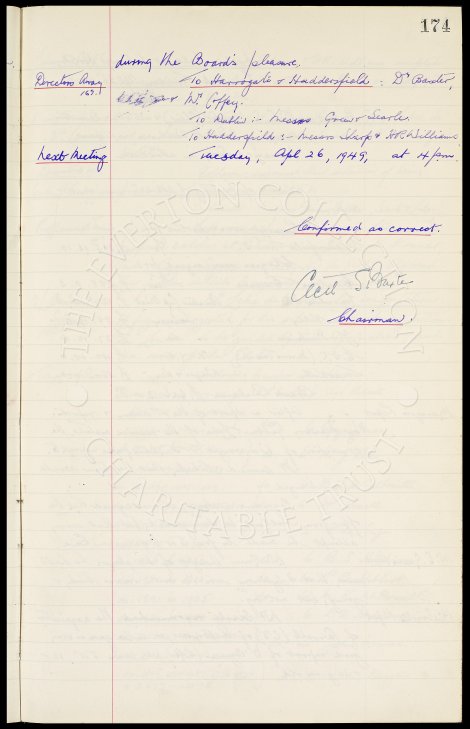 174
during the Board's pleasure.
Directors Away
169.
To Harrogate & Huddersfield : Dr Baxter,
& Mr. Coffey.
To Dublin :- Messrs Green & Searle.
To Huddersfield :- Messrs Sharp & H.P. Williams
Next Meeting
Tuesday, Apl 26, 1949, at 4 pm.
Confirmed as correct.
Cecil S. Baxter
Chairman.
THE EVERTON COLLECTION
CHARITABLE TRUST